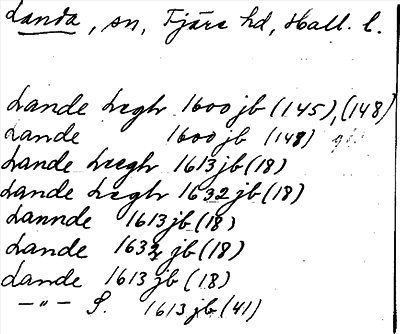 Landa, sn, Fjäre hd, Hall. l.
Lande Legh 1600 jb (145), (148)
Lande 1600 jb (148)
Lande Leegh 1613 jb (18)
Lande Legh 1632 jb (18)
Lannde 1613 jb (18)
Lande 1632 jb (18)
Lande 1613 jb (18)
—"— S. 1613 jb (41)